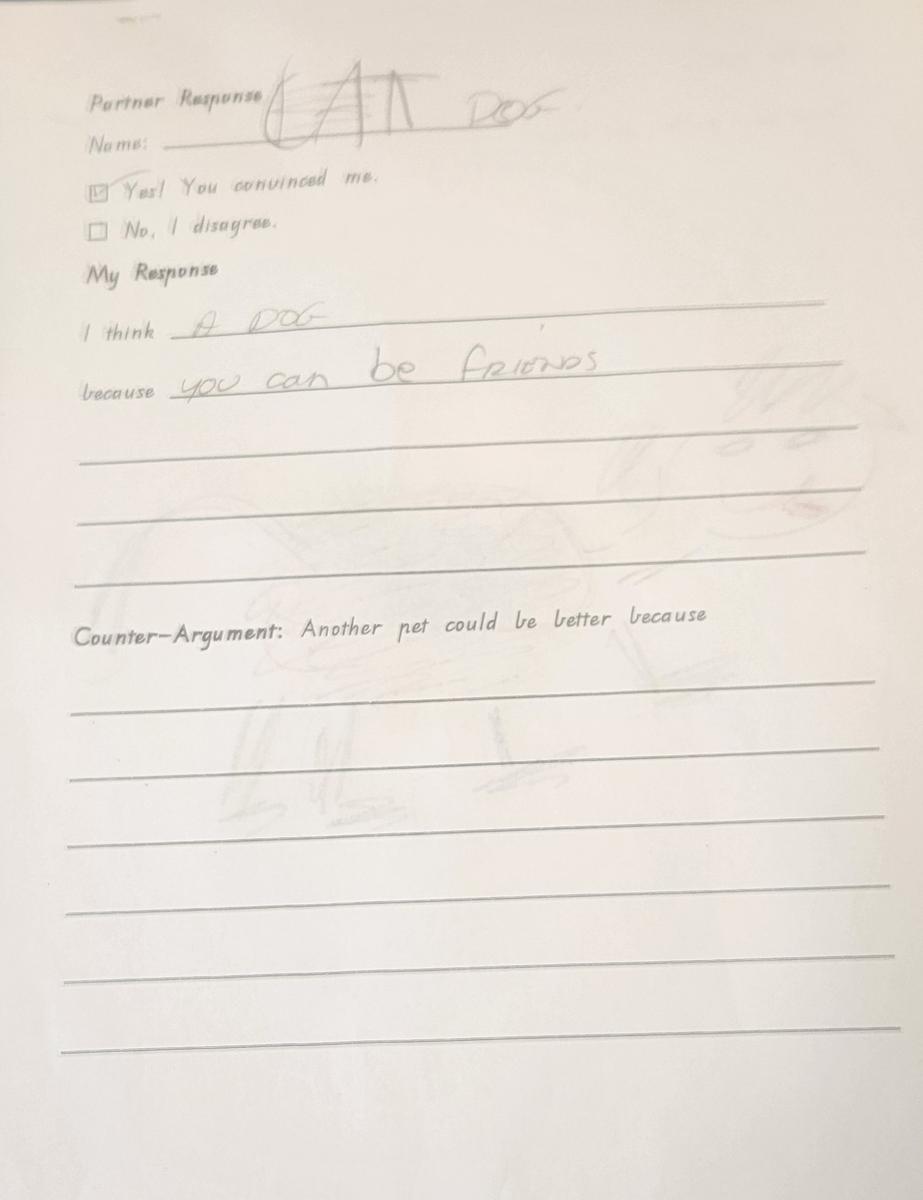 Partner Response
CAT DOG
Name:
Yes! You convinced me.
No, I disagree.
My Response
I think A DOG
because you can be FRIENDS
Counter-Argument: Another pet could be better because